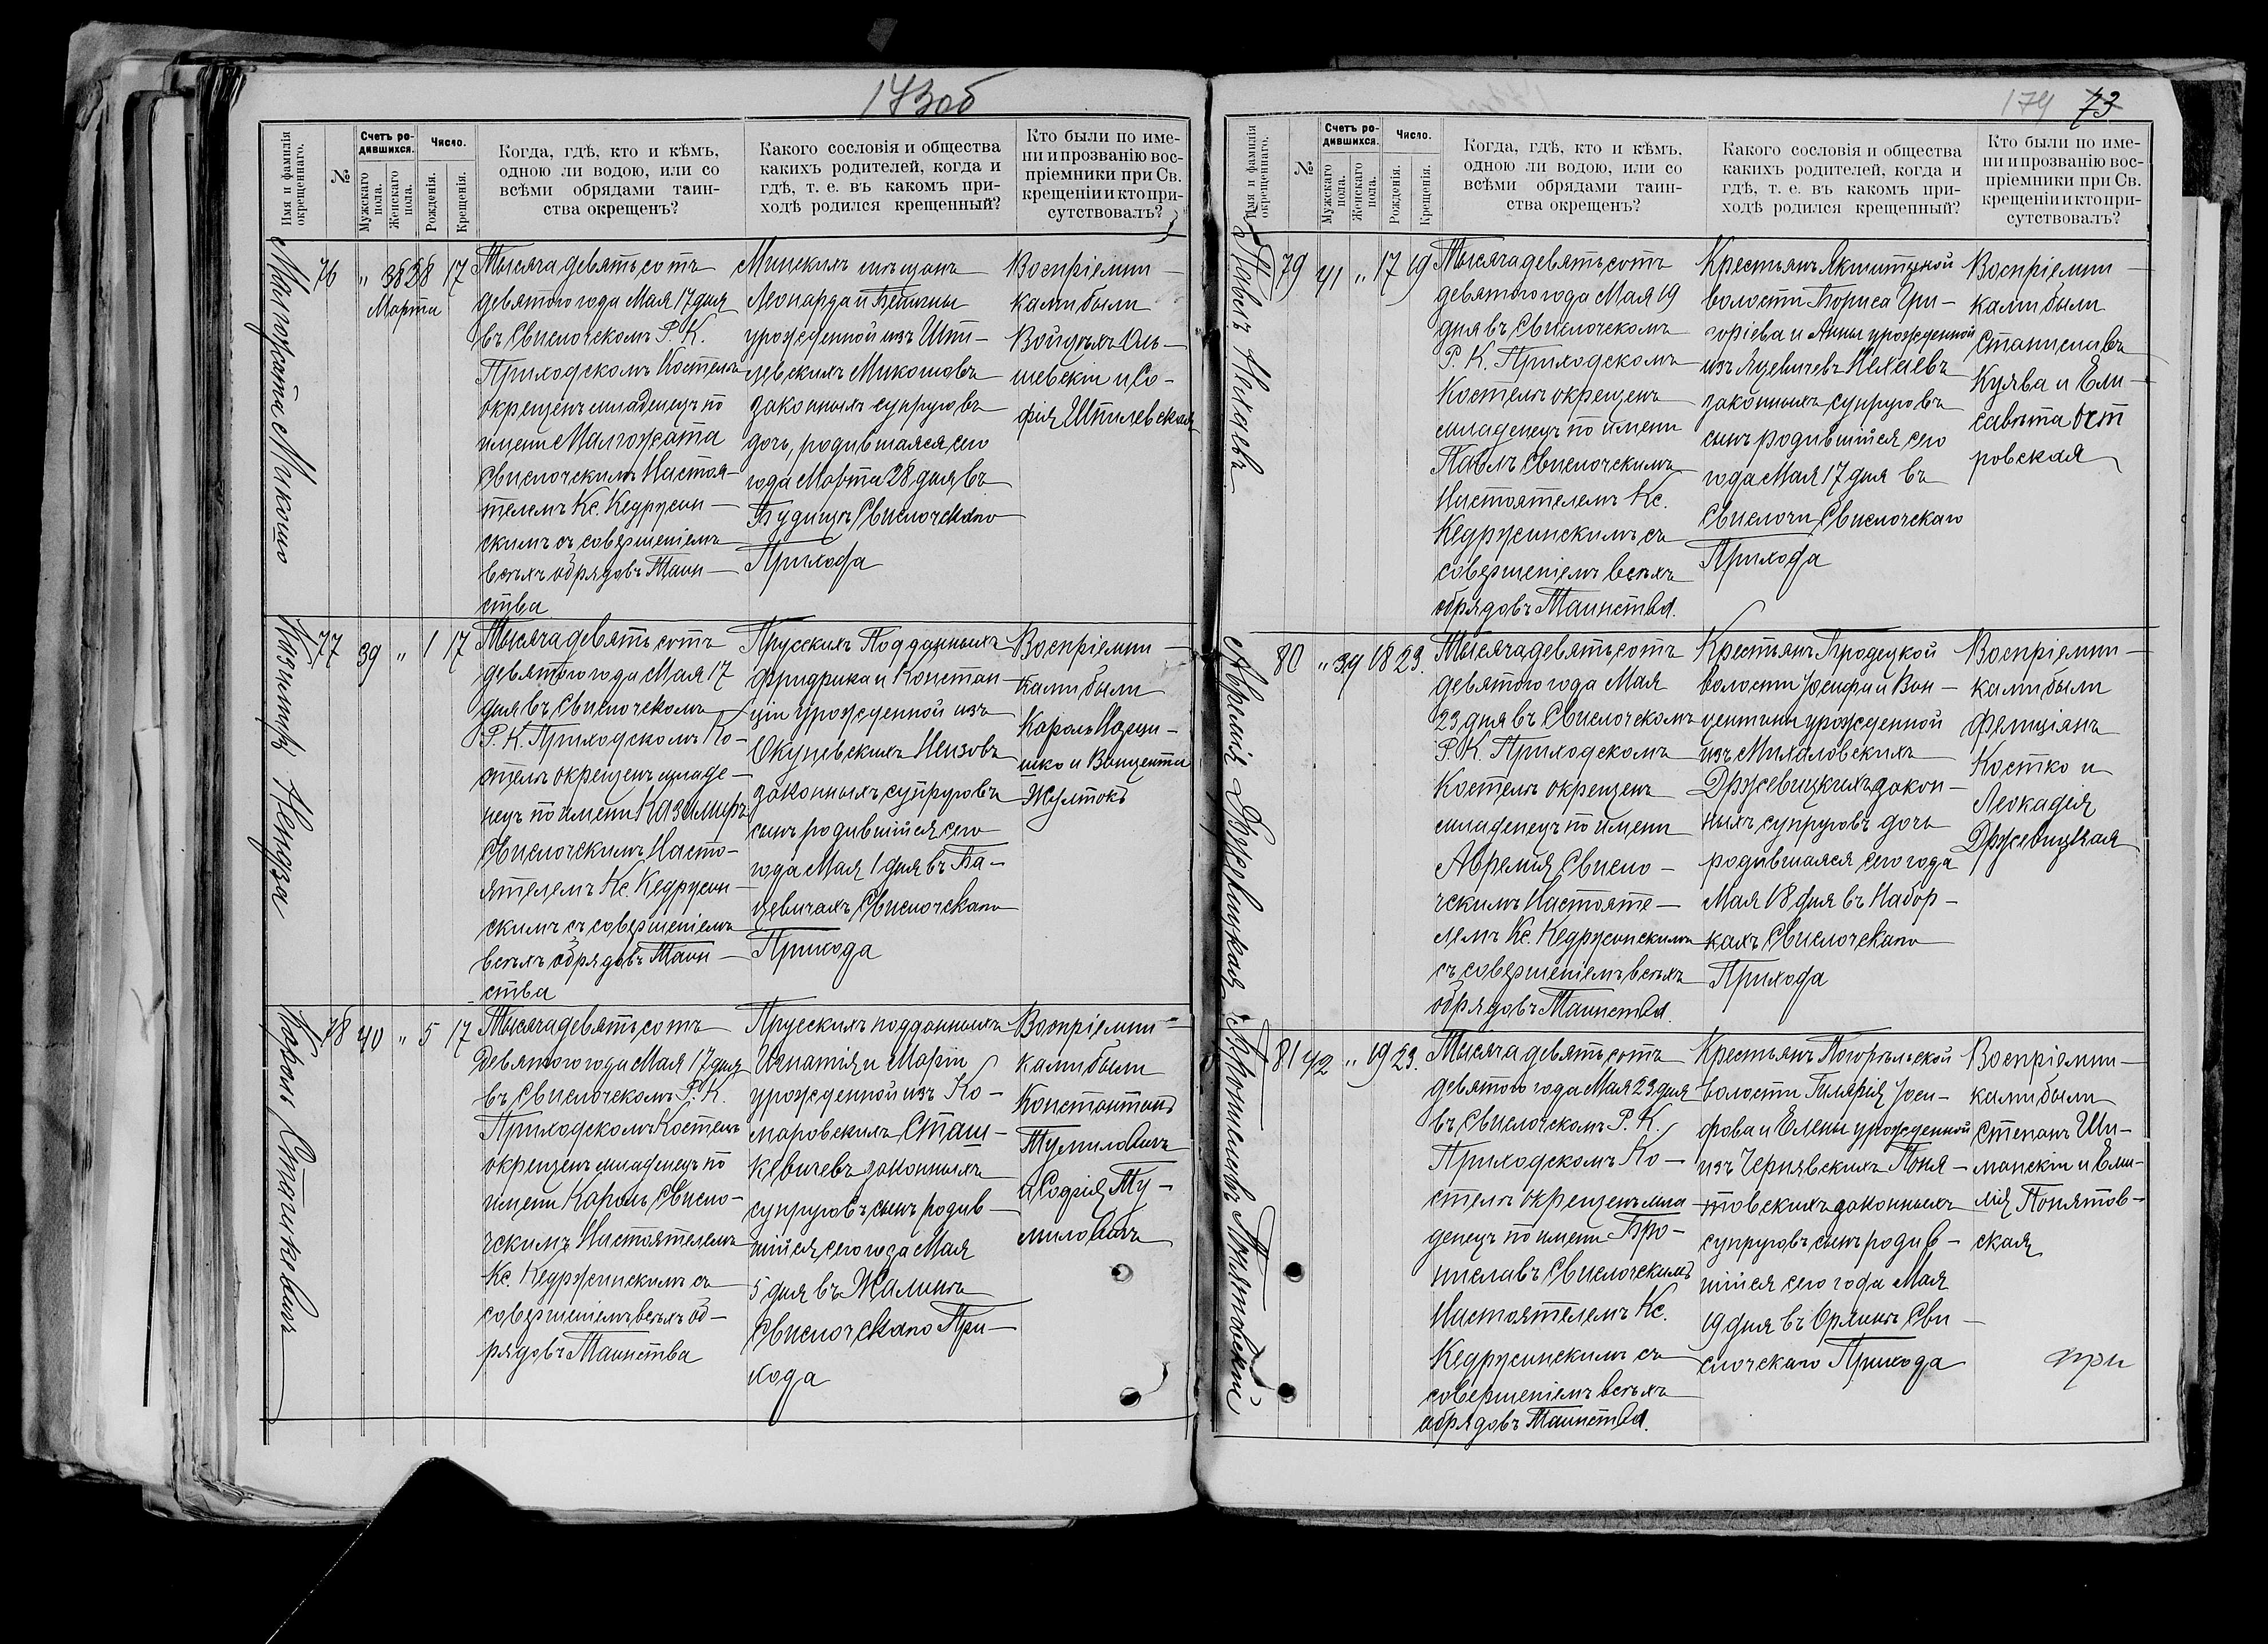 173об
Имя и фамилія окрещеннаго.
№
Счетъ ро-
дившихся.
Мужскаго пола.
Женскаго пола.
Число.
Рожденія.
Крещенія.
Когда, гдѣ, кто и кѣмъ,
одною ли водою, или со
всѣми обрядами таин-
ства окрещенъ?
Какого сословія и общества
какихъ родителей, когда и
гдѣ, т. е. въ какомъ при-
ходѣ родился крещенный?
Кто были по име-
ни и прозванію вос-
пріемники при Св.
крещеніи и кто при-
сутствовалъ?
Малгожата Микошо
76 „ 38 28 17
Марта
Тысяча девятьсотъ
девятого года Мая 17 дня
въ Свислочскомъ Р. К.
Приходскомъ Костелѣ
окрещенъ младенецъ по
имени Малгожата
Свислочскимъ Настоя-
телемъ Кс. Кедржин-
скимъ съ совершеніемъ
всѣхъ обрядовъ Таин-
ства
Минскихъ мѣщанъ
Леонарда и
урожденной изъ Шпи-
левскихъ Микошовъ
законныхъ супруговъ
дочь, родившаяся сего
года Марта 28 дня въ
Свислочскаго
Прихода
Воспріемни-
ками были
Войцѣхъ Оль-
шевскій и Со-
фія Шпилевская
Казимиръ Ненодза
77 39 „ 1 17
Тысяча девятьсотъ
девятого года Мая 17
дня въ Свислочскомъ
Р. К. Приходскомъ Ко-
стелѣ окрещенъ младе-
нецъ по имени Казимиръ
Свислочскимъ Насто-
ятелемъ Кс. Кедржин-
скимъ съ совершеніемъ
всѣхъ обрядовъ Таин-
ства
Прусскихъ Подданныхъ
Фридриха и Констан-
ціи урожденной изъ
законныхъ супруговъ
сынъ родившійся сего
года Мая 1 дня въ Ба-
цевичахъ Свислочскаго
Прихода
Воспріемни-
ками были
Кароль
и Винцента
Жултокъ
Кароль Сташкевичъ
78 40 „ 5 17
Тысяча девятьсотъ
девятого года Мая 17 дня
въ Свислочскомъ Р. К.
Приходскомъ Костелѣ
окрещенъ младенецъ по
имени Кароль Свисло-
чскимъ Настоятелемъ
Кс. Кедржинскимъ съ
совершеніемъ всѣхъ об-
рядовъ Таинства
Прусскихъ подданныхъ
Игнатія и Маріи
урожденной изъ Ко-
маровскихъ Сташ-
кевичевъ законныхъ
супруговъ сынъ родив-
шійся сего года Мая
5 дня въ Жалинѣ
Свислочскаго При-
хода
Воспріемни-
ками были
Константинъ
Тумиловичъ
и Софія Ту-
миловичъ
174 73
Имя и фамилія окрещеннаго.
№
Счетъ ро-
дившихся.
Мужскаго пола.
Женскаго пола.
Число.
Рожденія.
Крещенія.
Когда, гдѣ, кто и кѣмъ,
одною ли водою, или со
всѣми обрядами таин-
ства окрещенъ?
Какого сословія и общества
какихъ родителей, когда и
гдѣ, т. е. въ какомъ при-
ходѣ родился крещенный?
Кто были по име-
ни и прозванію вос-
пріемники при Св.
крещеніи и кто при-
сутствовалъ?
Павелъ Нехаевъ
79 41 „ 17 19
Тысяча девятьсотъ
девятого года Мая 19
дня въ Свислочскомъ
Р. К. Приходскомъ
Костелѣ окрещенъ
младенецъ по имени
Павлъ Свислочскимъ
Настоятелемъ Кс.
Кедржинскимъ съ
совершеніемъ всѣхъ
обрядовъ Таинства.
Крестьянъ Якшитцской
волости Бориса Гри-
горіева и Анны урожденной
изъ Яцевичевъ Нехаевъ
законныхъ супруговъ
сынъ родившійся сего
года Мая 17 дня въ
Свислочи Свислочскаго
Прихода
Воспріемни-
ками были
Станиславъ
Кулява и Ели-
савѣта Ост
ровская
Аврелія Држевицкая
80 „ 39 18 23.
Тысяча девятьсотъ
девятого года Мая
23 дня въ Свислочскомъ
Р. К. Приходскомъ
Костелѣ окрещенъ
младенецъ по имени
Аврелія Свисло-
чскимъ Настояте-
лемъ Кс. Кедржинскимъ
съ совершеніемъ всѣхъ
обрядовъ Таинства.
Крестьянъ Бродецкой
волости Іосифа и Вин-
центины урожденной
изъ Михаловскихъ
Држевицкихъ закон-
ныхъ супруговъ дочь
родившаяся сего года
Мая 18 дня въ Набор-
кахъ Свислочскаго
Прихода
Воспріемни-
ками были
Фелиціанъ
Костко и
Леокадія
Држевицкая
Брониславъ Понятовскій
81 42 „ 19 23.
Тысяча девятьсотъ
девятого года Мая 23 дня
въ Свислочскомъ Р. К.
Приходскомъ Ко-
стелѣ окрещенъ мла-
денецъ по имени Бро-
ниславъ Свислочскимъ
Настоятелемъ Кс.
Кедржинскимъ съ
совершеніемъ всѣхъ
обрядовъ Таинства.
Крестьянъ Погорѣльской
волости Гиларія Іоси-
фова и Елены урожденной
изъ Чернявскихъ Поня-
товскихъ законныхъ
супруговъ сынъ родив-
шійся сего года Мая
19 дня въ Орлинѣ Сви-
слочскаго Прихода
Воспріемни-
ками были
Степанъ Ши-
манскій и Еми-
лія Понятов-
ская
при